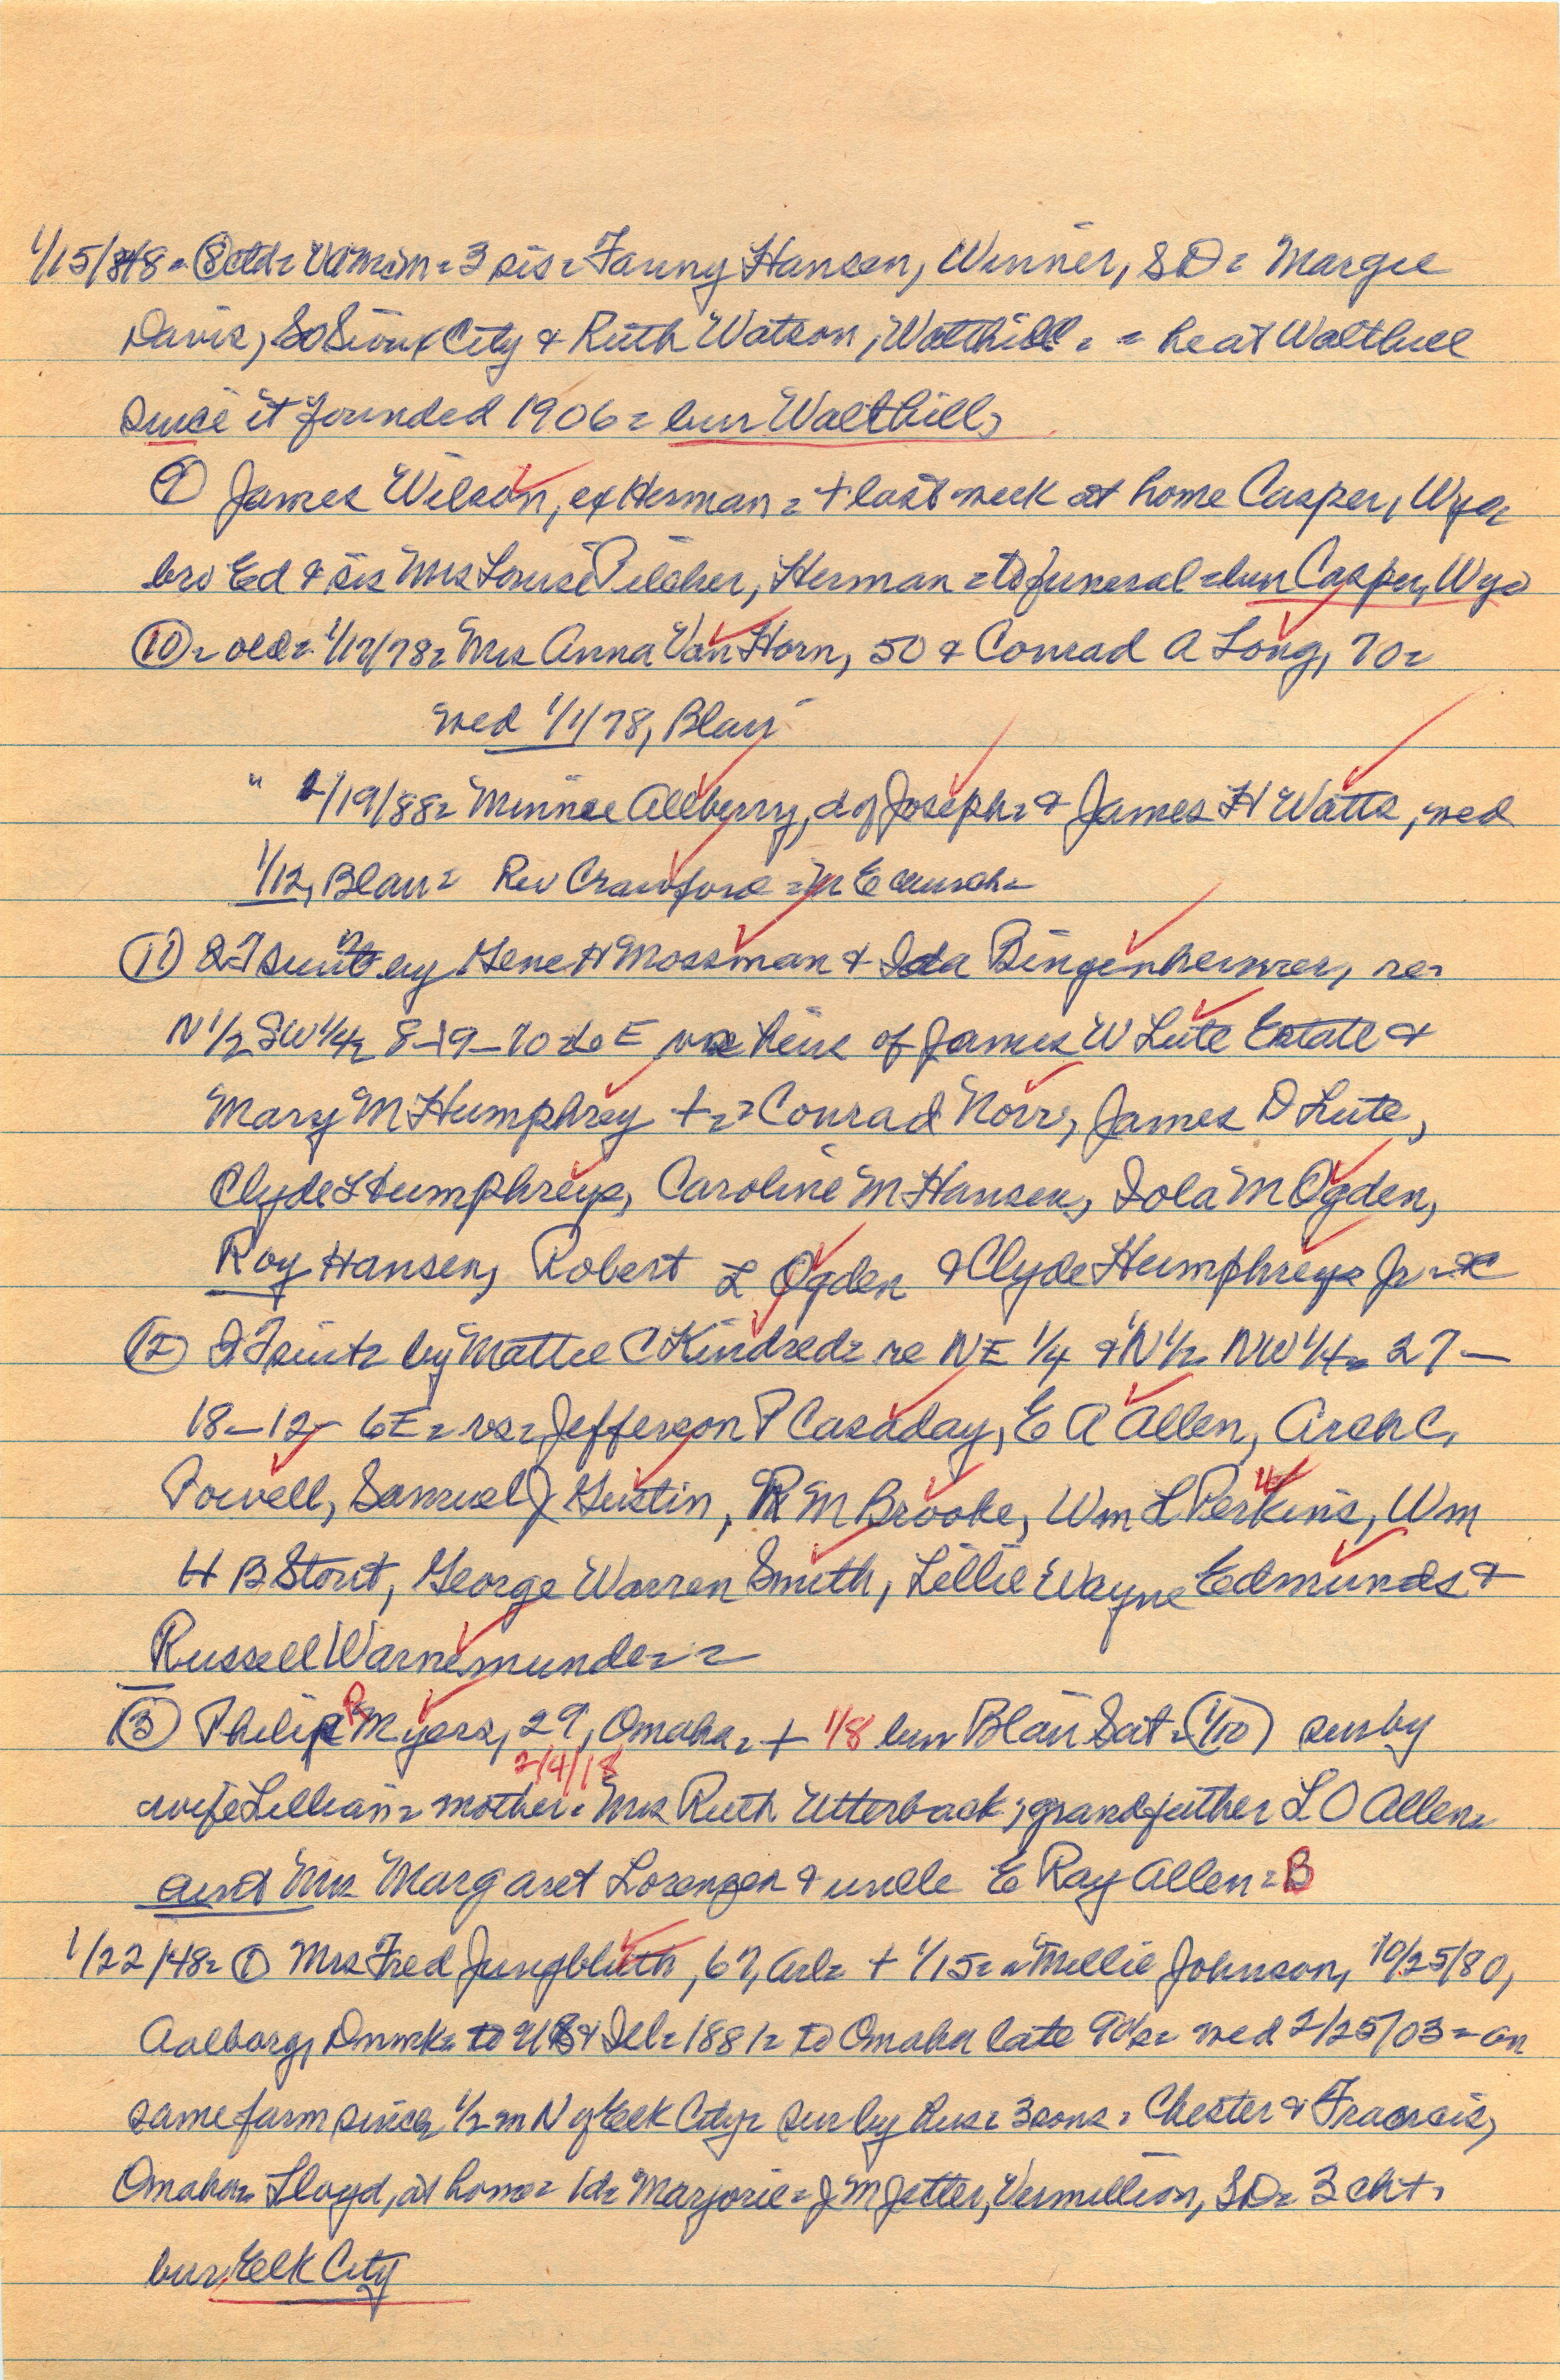 1/15/48 = (8) ctd = = 3 sis = Fanny Hansen, Winner, SD = Margie
Davis, So Sioux City & Ruth Watson, Walthill = = he at Walthill
since it founded 1906 = bur Walthill,
(9) James Wilson, ex Herman = + last week at home Casper, Wyo
bro Ed & sis Mrs Louise Pilcher, Herman = to funeral = bur Casper, Wyo
(10) = old = 1/17/78 = Mrs Anna Van Horn, 50 & Conrad A Long, 70 =
wed 1/1/78, Blair
" 1/19/88 = Minnie Allberry, d of Joseph = & James H Watts, wed
1/12, Blair = Rev Crawford = M E church =
(11) QT suit by Gene H Mossman & Ida Bingenheimer, re =
N 1/2 SW 1/4 = 8-19-10 E heirs of James W Lute Estate &
Mary M Humphrey + = = Conrad Norr, James D Lute,
Clyde Humphreys, Caroline M Hansen, Iola M Ogden,
Roy Hansen, Robert L Ogden & Clyde Humphreys Jr =
(12) QT suit = by Mattie C Kindred = re NE 1/4 & N 1/2 NW 1/4 = 27-
18-12- 6E = vs = Jefferson P Casaday, E A Allen, Arch C.
Powell, Samuel J Gustin, R M Brooke, Wm L Perkins, Wm
H B Stout, George Warren Smith, Lillie Wayne Edmunds &
Russell Warnemunde = =
(13) Philip R Myers, 29, Omaha = + 1/8 bur Blair Sat = (1/10) sur by
2/4/18
wife Lillian = mother = Mrs Ruth Utterback; grandfather L O Allen =
aunt Mrs Margaret Lorenzen & uncle E Ray Allen = B
1/22/48 = (1) Mrs Fred Jungbluth, 67, Arl = + 1/15 = n Mellie Johnson, 10/25/80,
Aalborg, Dnmrk = to US & Ill = 1881 = to Omaha late 90's = wed 2/25/03 = on
same farm since, 1/2 m N of Elk City = sur by hus = 3 sons = Chester & Francis,
Omaha = Lloyd, at home = 1 d = Marjorie = J M Jetter, Vermillion, SD = 3 cht =
bur Elk City